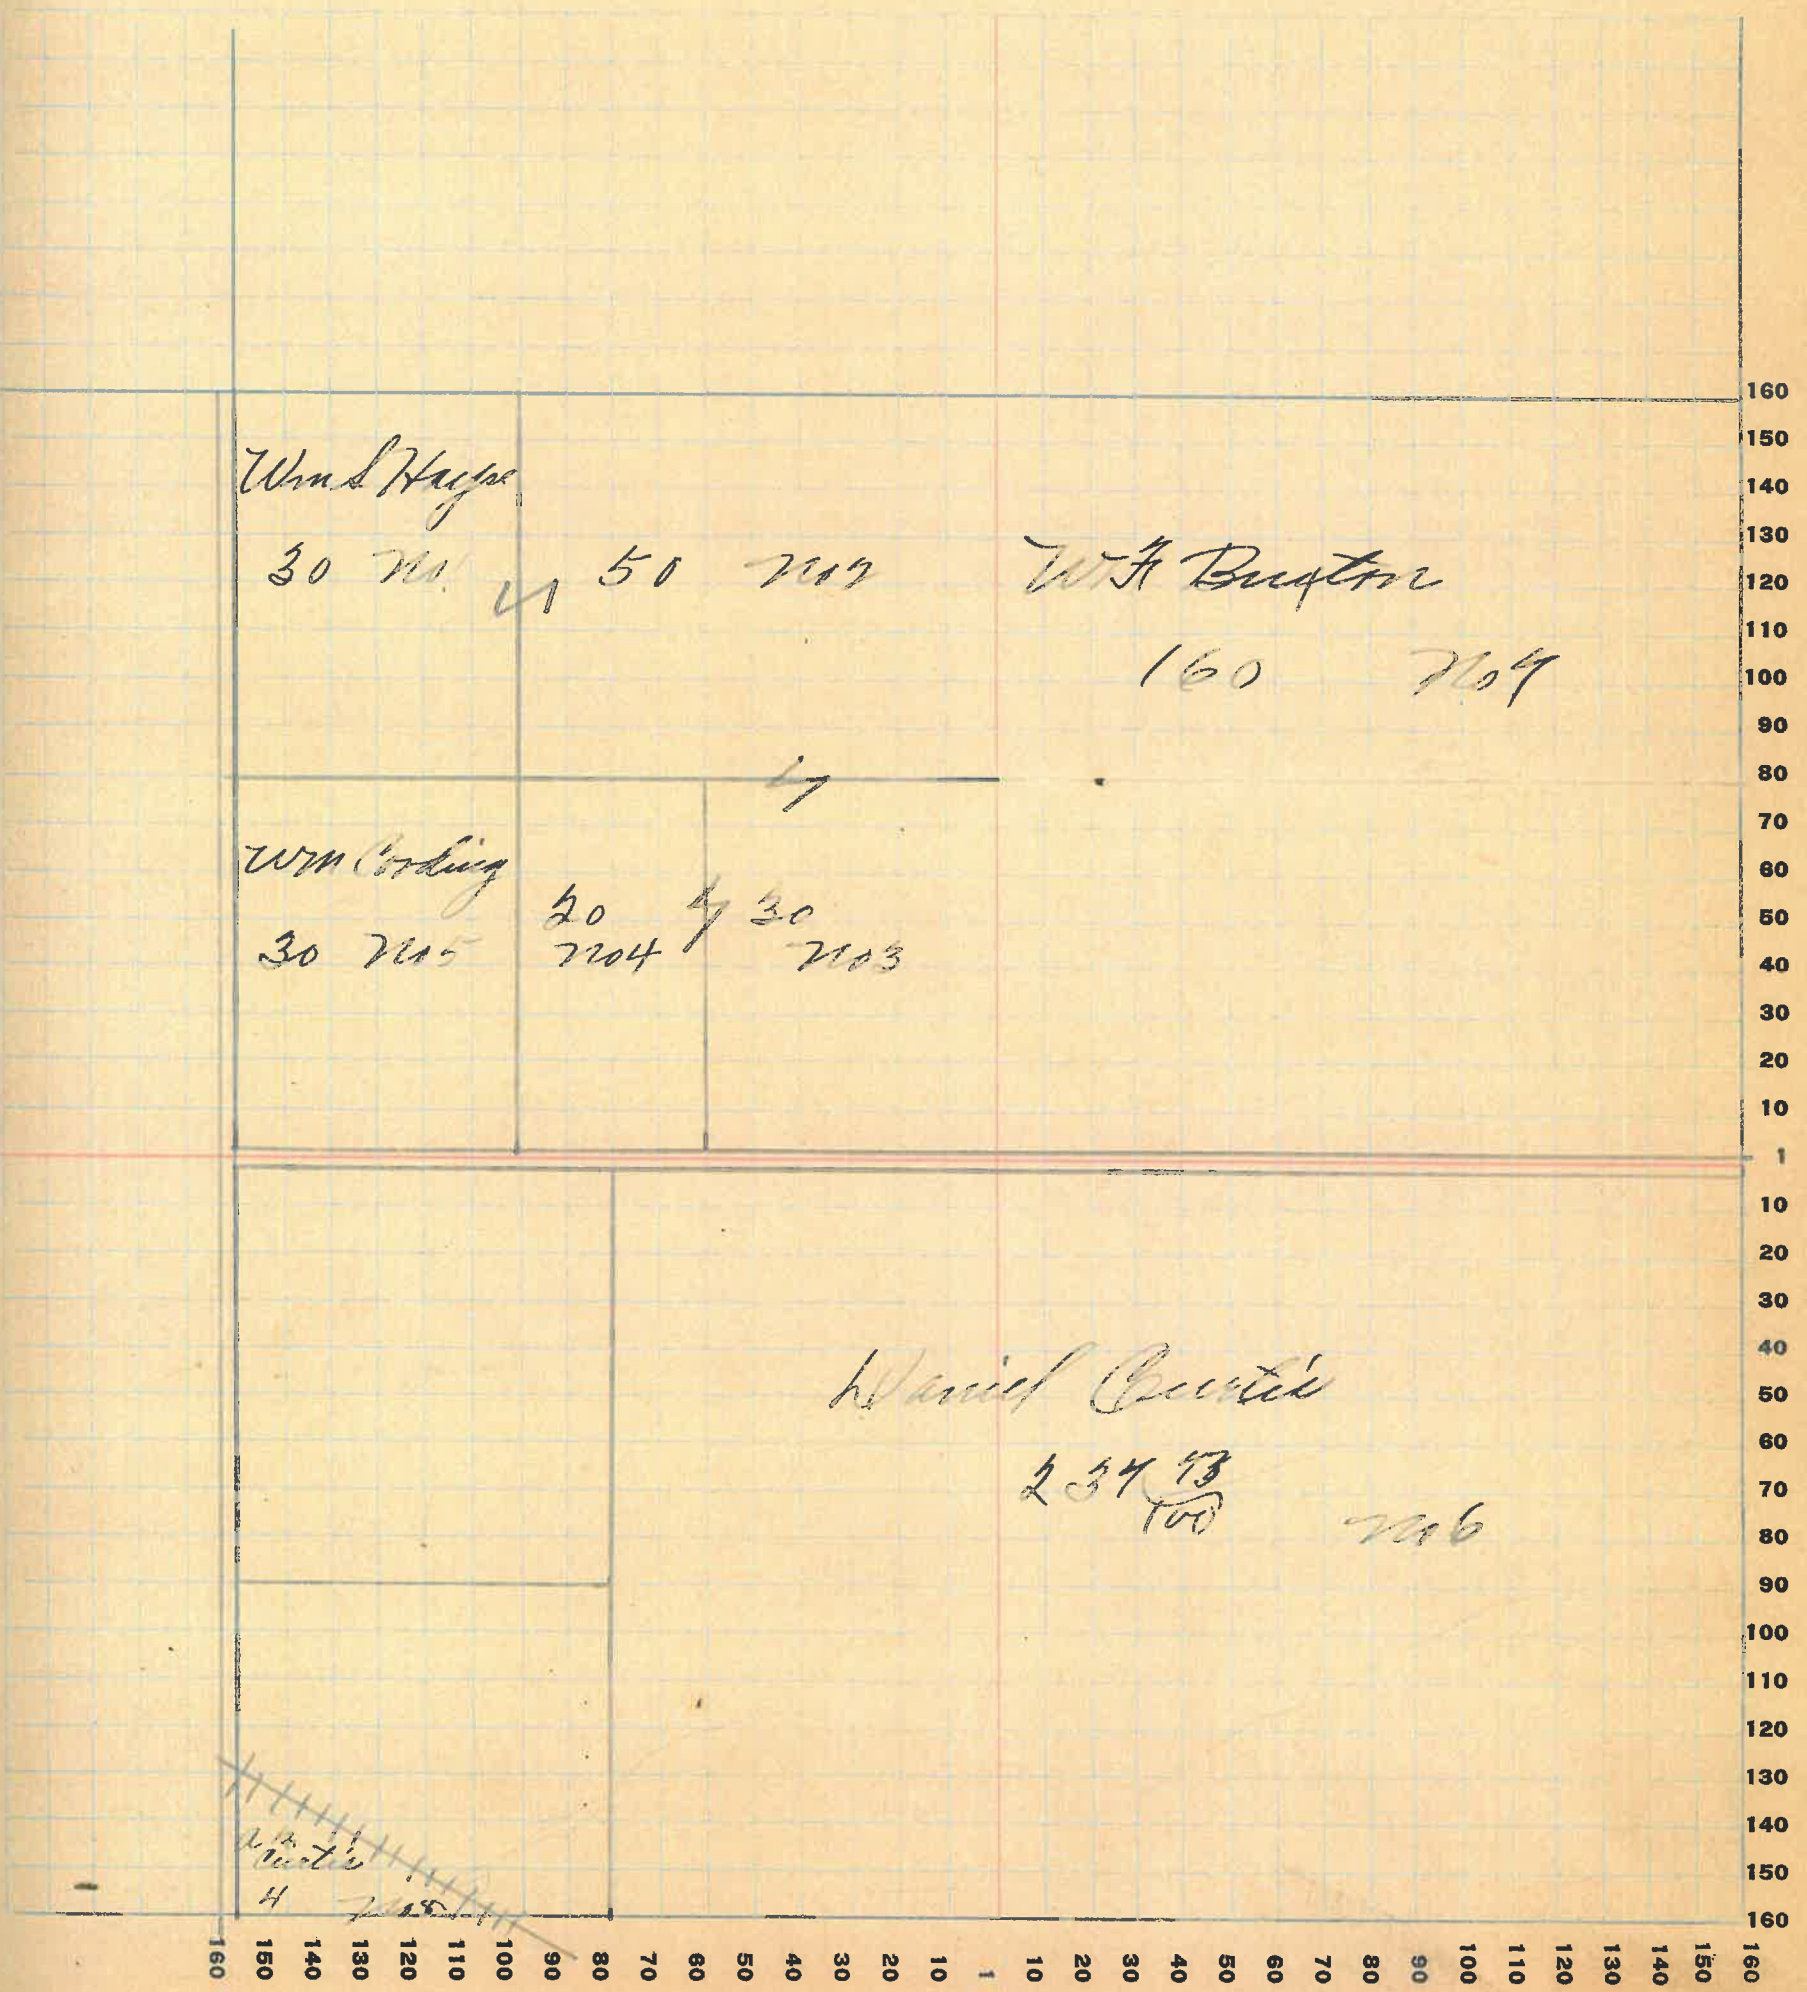 Wm S Hayse
30 No 1
50 No 2
W F Buxton
160 No 9
Wm Cording
30 No 5
20
No 4
30
No 3
Daniel Curtis
234 73/100
No 6
Curtis
4 No 8
160
150
140
130
120
110
100
90
80
70
60
50
40
30
20
10
1
10
20
30
40
50
60
70
80
90
100
110
120
130
140
150
160
160 150 140 130 120 110 100 90 80 70 60 50 40 30 20 10 1 10 20 30 40 50 60 70 80 90 100 110 120 130 140 150 160